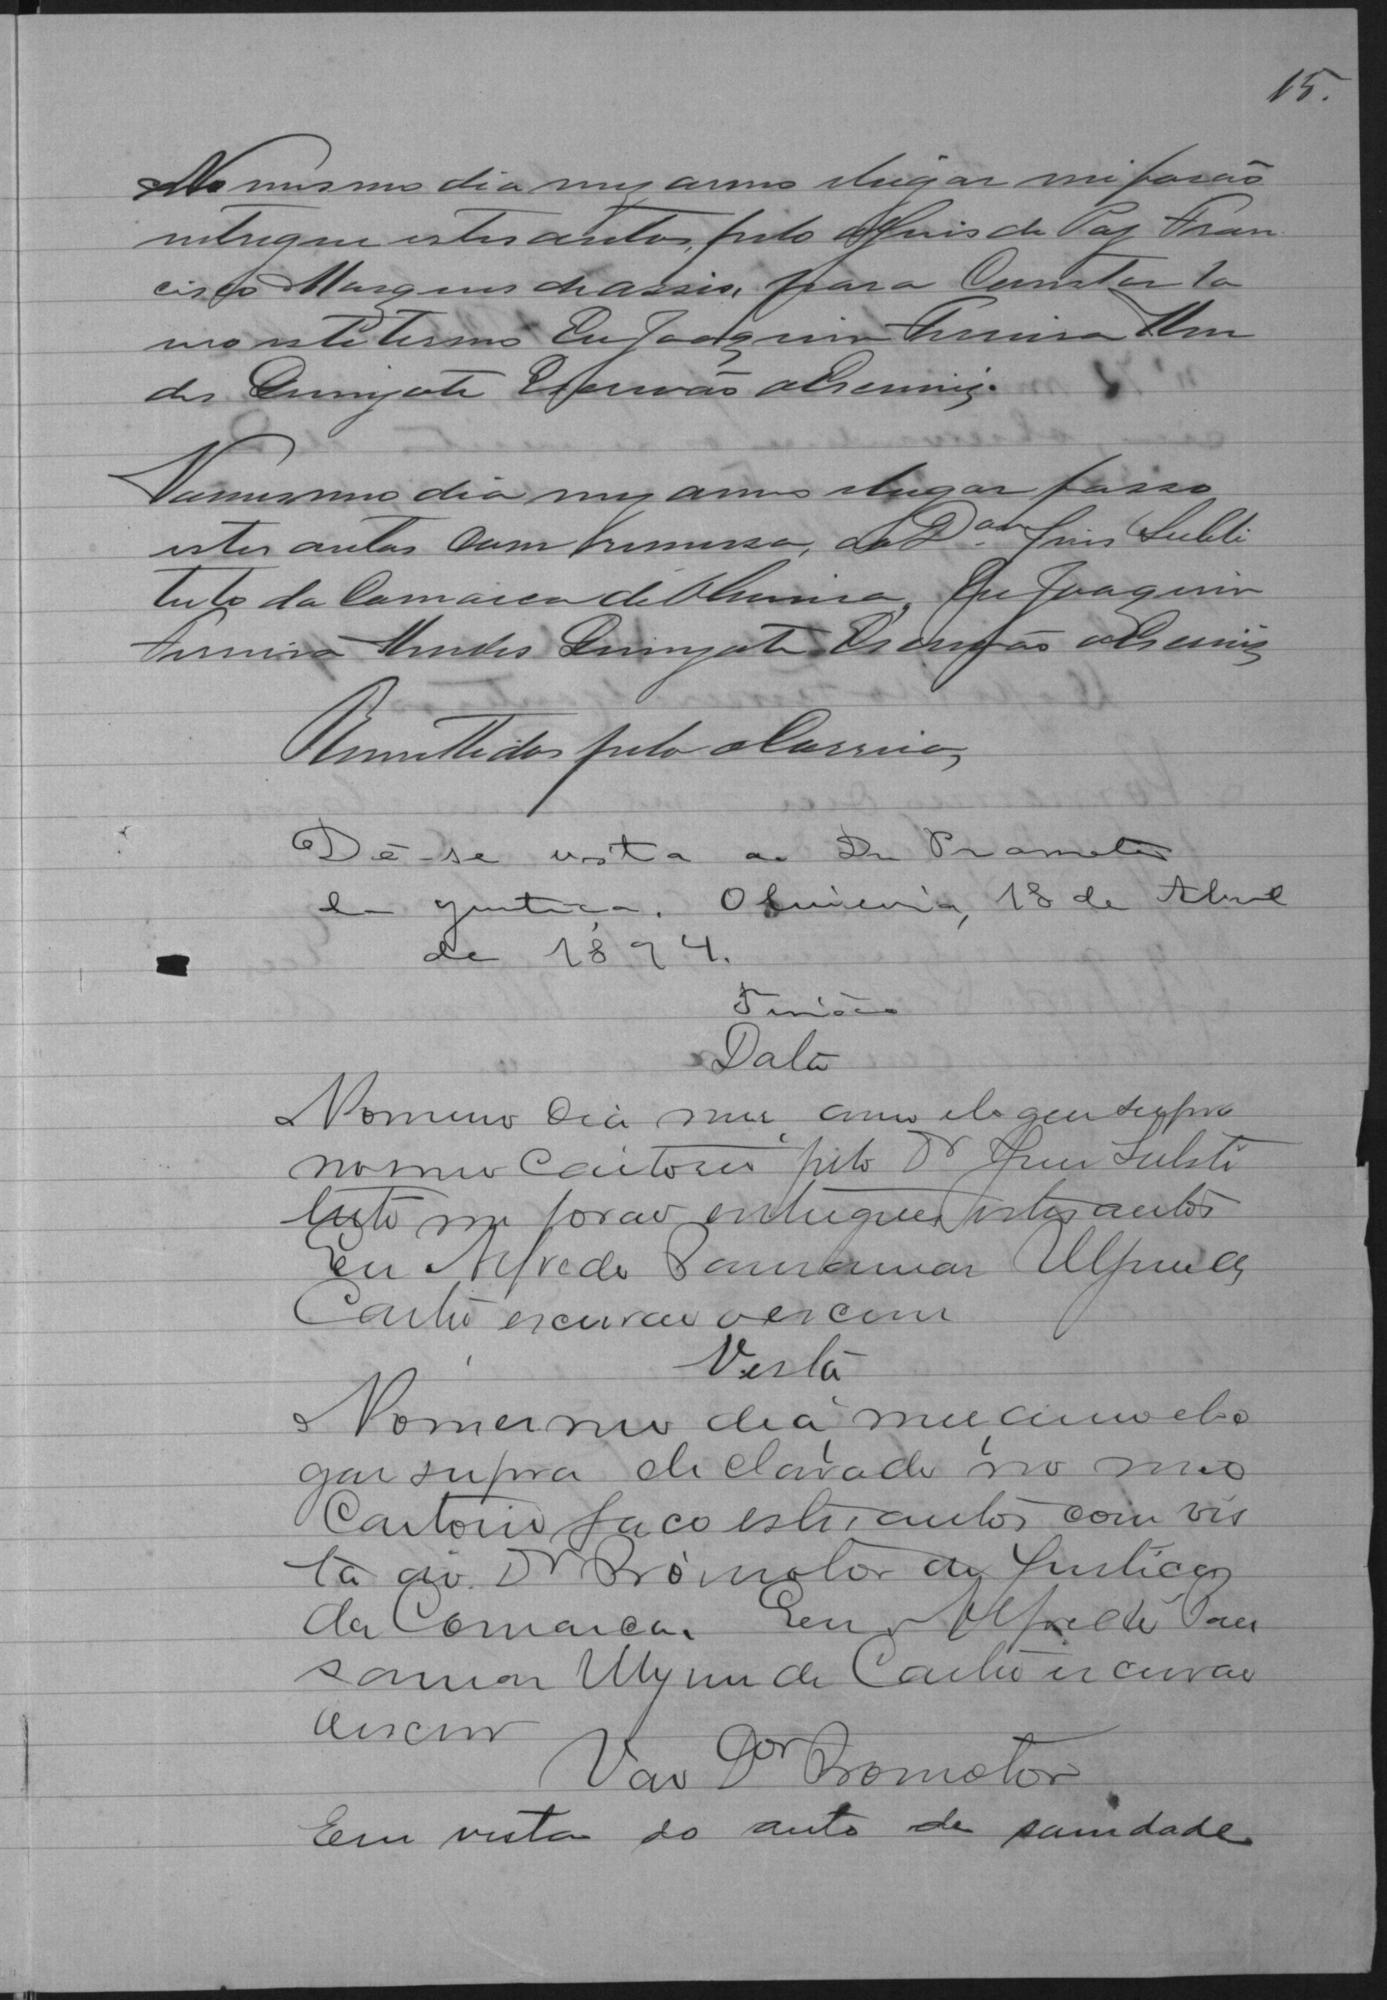 15.
No mesmo dia mez anno e lugar me forão
entregue estes autos, pelo Juis de Paz Fran
cisco Marques de Assis, para Constar la
vro este termo Eu Joaquim Ferreira Men
des Escrivão o escrevi.
No mesmo dia mez anno e lugar fasso
estes autos com remessa, ao Dor Juis Substi
tuto da Comarca de Eu Joaquim
Ferreira Mendes Escrivão o escrevi
Remettidos pelo Correio,
Dê-se vista ao Dr Promotor
da Justiça. 18 de Abril
de 1894.
Data
No mesmo dia mez, anno e lugar supra
no meo Cartorio pelo Dr Juis Substi
tuto me forao entregues estes autos
Eu Alfredo
Castro escrivao o escrevi
Vista
No mesmo dia, mez, anno e lu
gar supra declarado no meo
Cartorio faço estes autos com vis
ta ao Dr Promotor da Justiça
da Comarca. Eu Alfredo
de Castro escrivao
o escrevi
V ao Dor Promotor
Em vista do auto de sanidade